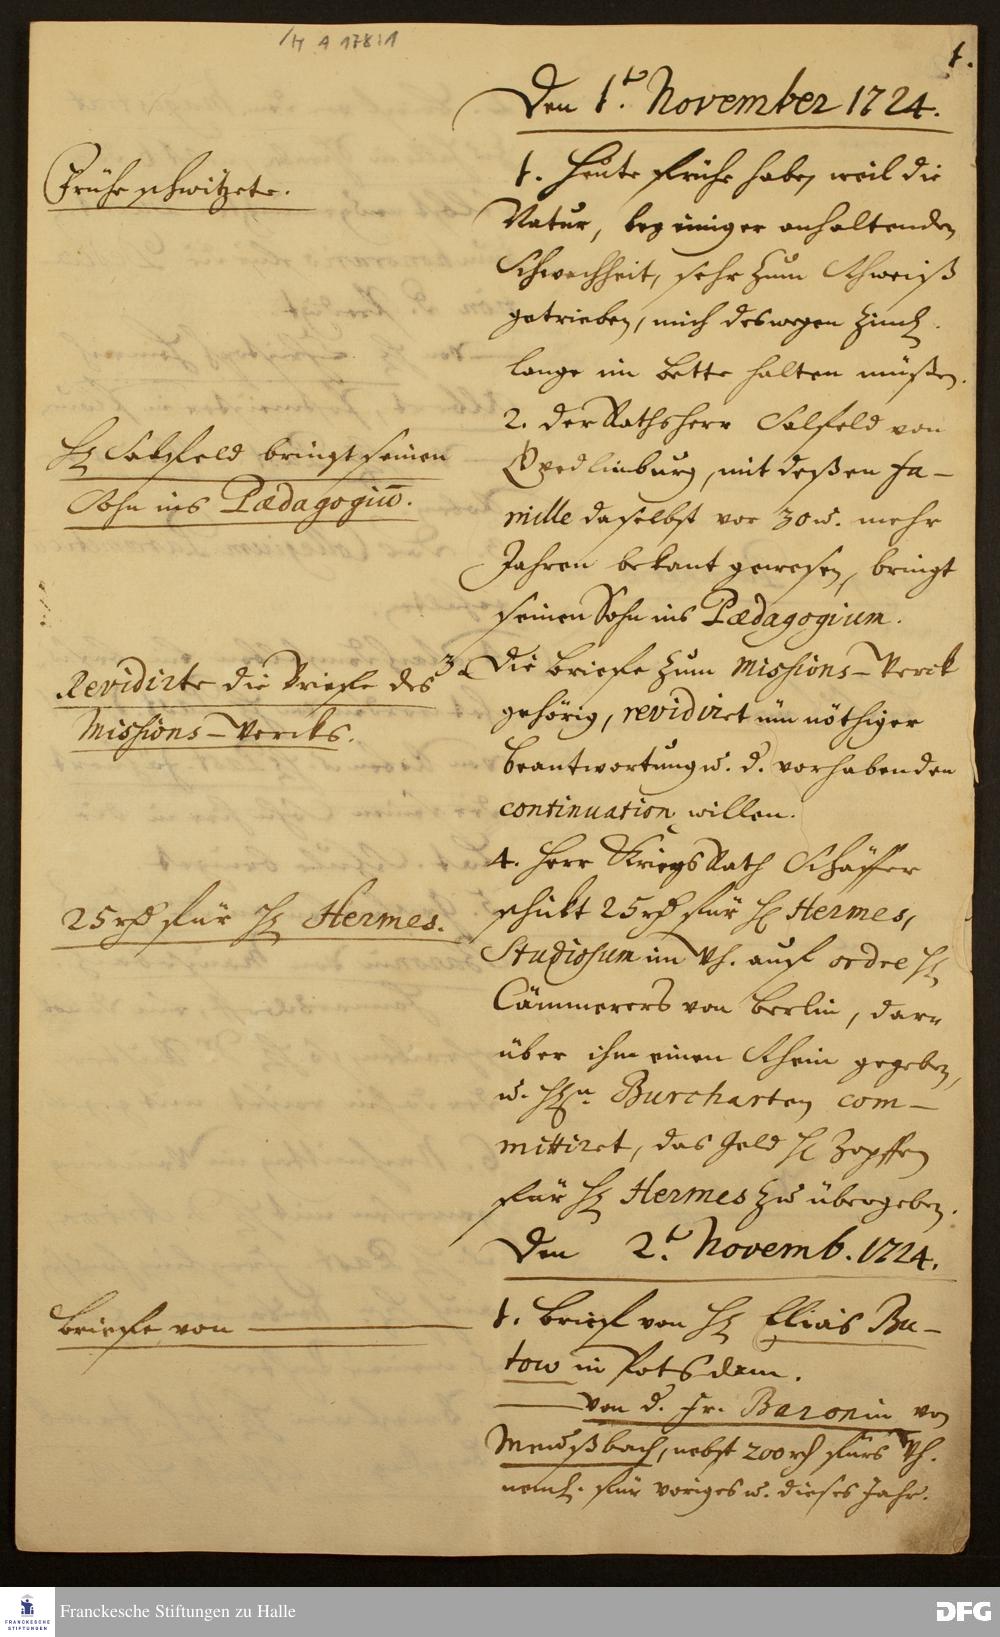 /H A 178:1
1.
Den 1.t November 1724.
Frühe schwitzete.
1. Heute frühe habe, weil die
Natur, bey einiger anhaltenden
Schwachheit, sehr zum Schweiß
getrieben, mich deswegen ziml.
lange im Bette halten müßen.
H Salfeld bringt seinen
Sohn ins Pædagogiū.
2. der Rathsherr Salfeld von
Qvedlinburg, mit deßen Fa-
mille daselbst vor 30 u. mehr
Jahren bekant gewesen, bringt
seinen Sohn ins Pædagogium.
Revidirte die Briefe des
Missions-Wercks.
3. Die Briefe zum Missions-Werck
gehörig, revidiret üm nöthiger
Beantwortung u. d. vorhabenden
continuation willen.
25 rth für H Hermes.
4. Herr KriegsRath Schäffer
schickt 25 rth für H Hermes,
Studiosum im Wh. auf ordre H
Cämmerers von Berlin, dar-
über ihm einen Schein gegeben,
u. HEn. Burcharten com-
mittiret, das Geld H Zopffen
für H Hermes zu übergeben.
Den 2.t Novemb. 1724.
Briefe von
1. Brief von H Elias Bu-
tow in Potsdam.
von d. Fr. Baronin von
Meuseßbach, nebst 200 rth fürs Wh.
neml. für voriges u. dieses Jahr.
FRANCKESCHE STIFTUNGEN
Franckesche Stiftungen zu Halle
DFG